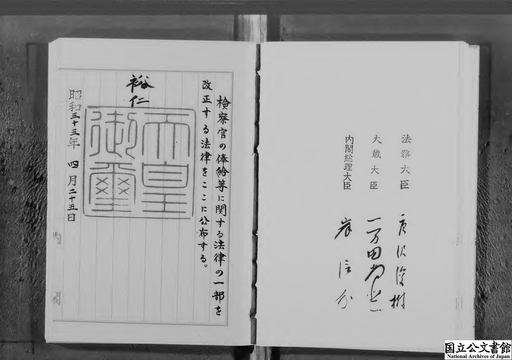 検察官の俸給等に関する法律の一部を
改正する法律をここに公布する。
裕仁
天皇
御璽
昭和三十三年四月二十五日
法務大臣 唐沢俊樹
大蔵大臣 一万田尚登
内閣総理大臣 岸信介
国立公文書館
National Archives of Japan